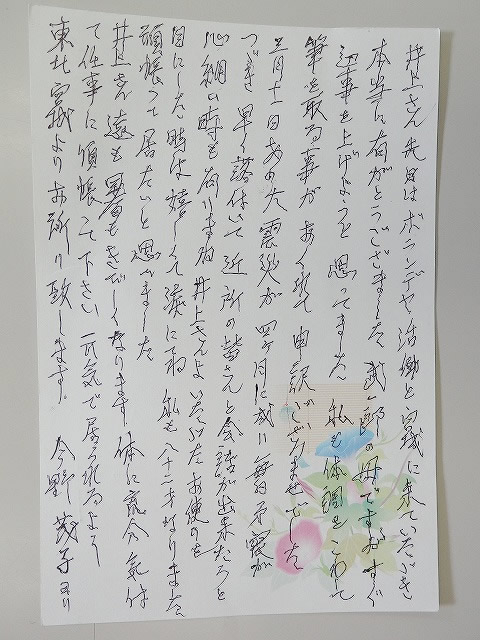 井上さん先日はボランデヤ活働と宮城に来ていたゞき
本当に有がとうございました 武郎の母ですがすぐ
返事を上げようと思ってました 私も体調をこわして
筆を取る事が おくれて 申訳ございませんでした
三月十一日あの大震災が四ヶ月に成り毎日 余震が
つゞき 早く落付いて近所の皆さんと会話が出来たらと
心細い時も有りますね 井上さんよりいたゞいたお便りを
目にした時は嬉しくて涙にね 私も八十二才なりました
頑張って居たいと思いました
井上さん遠も暑さもきびしくなります 体に充分気は
て仕事に頑張って下さい 元気で居られるよう
東北宮城よりお祈り致します。 今野茂子より